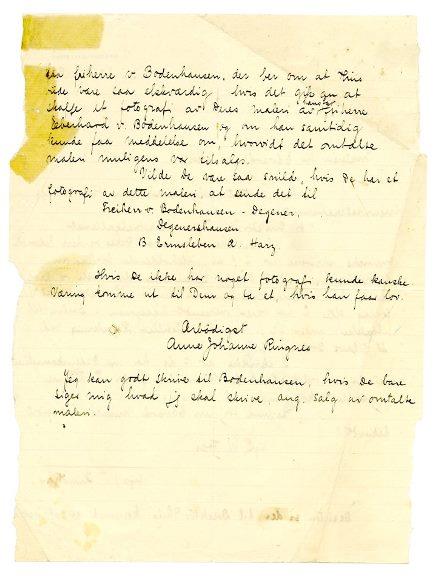 fra friherre v. Bodenhausen, der ber om at
vilde være saa elskværdig, hvis det gik an at
skaffe et fotografi av Deres maleri av friherre
Eberhard v. Bodenhausen og om han samtidig
kunde faa meddelelse om, hvorvidt det omtalte
maleri muligens var tilsalgs.
Vilde De være saa snild, hvis De har et
fotografi av dette maleri, at sende det til
Freiherr v. Bodenhausen - Degener,
Degenershausen
B. Ermsleben a. Harz
Hvis De ikke har noget fotografi kunde kanske
Væring komme ut til Dem og ta et, hvis han faar lov.
Ærbødigst
Anne Johanne Ringnes
Jeg kan godt skrive til Bodenhausen, hvis De bare
siger mig hvad jeg skal skrive, ang. salg av omtalte
maleri.